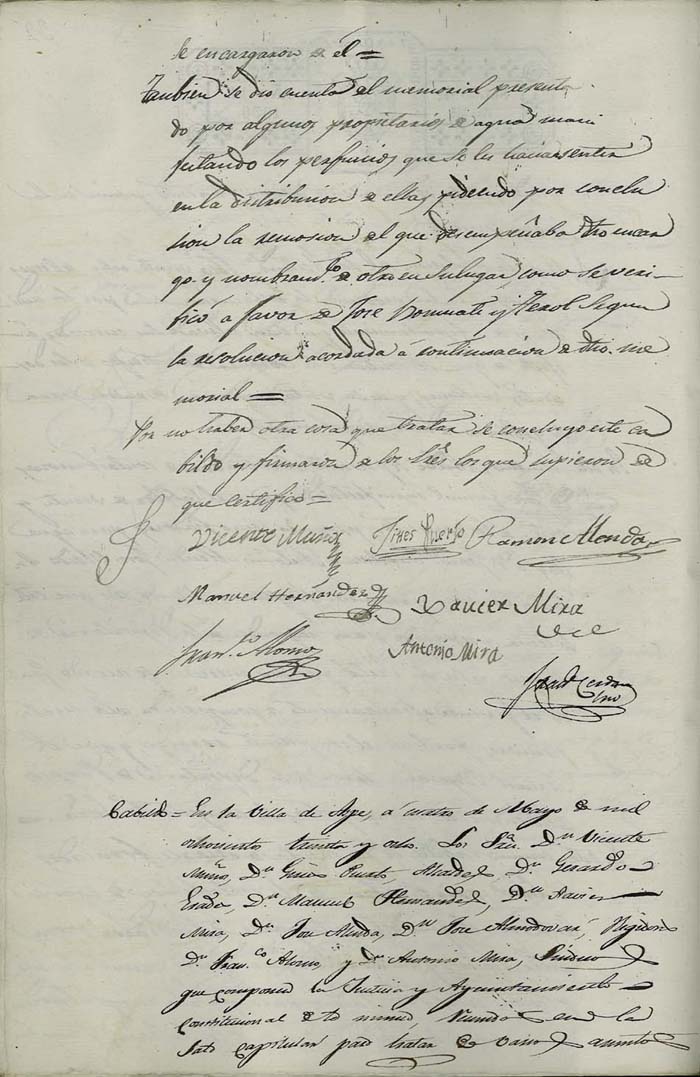 se encargaron de él =
Tanbien se dio cuenta del memorial presenta
do por algunos propietarios de agua mani
festando los perjuicios que se les hacia sentir
en la distribucion de ellas pidiendo por conclu
sion la remosion del que desempeñaba dho encar
go y nombramto de otro en su lugar, como se veri-
ficó a favor de Jose y Terol Segun
la resolucion acordada á continuacion de dho. me
morial =
Por no haber otra cosa que tratar se concluyo este ca
bildo y firmaron de los Sres los que supieron de
que certifico =
Vicente Muñoz Ramon Mends
Manuel Hernandez Xavier Mira
Franco Alonso Antonio Mira
Cabildo = En la Villa de Aspe, á cuatro de Mayo de mil
ochocientos treinta y ocho. Los Sres. Dn Vicente
Muñoz, Dn Gines , Alcaldes, Dn Gerardo
Dn Manuel Hernandez, Dn Xavier
Mira, Dn Jose , Dn Jose Almodovar, Regidores
Dn Franco Alonso, y Dn Antonio Mira, Sindicos
que componen la Justicia y Ayuntamiento
constitucional de la misma, reunidos en la
Sala capitular para tratar de varios asuntos